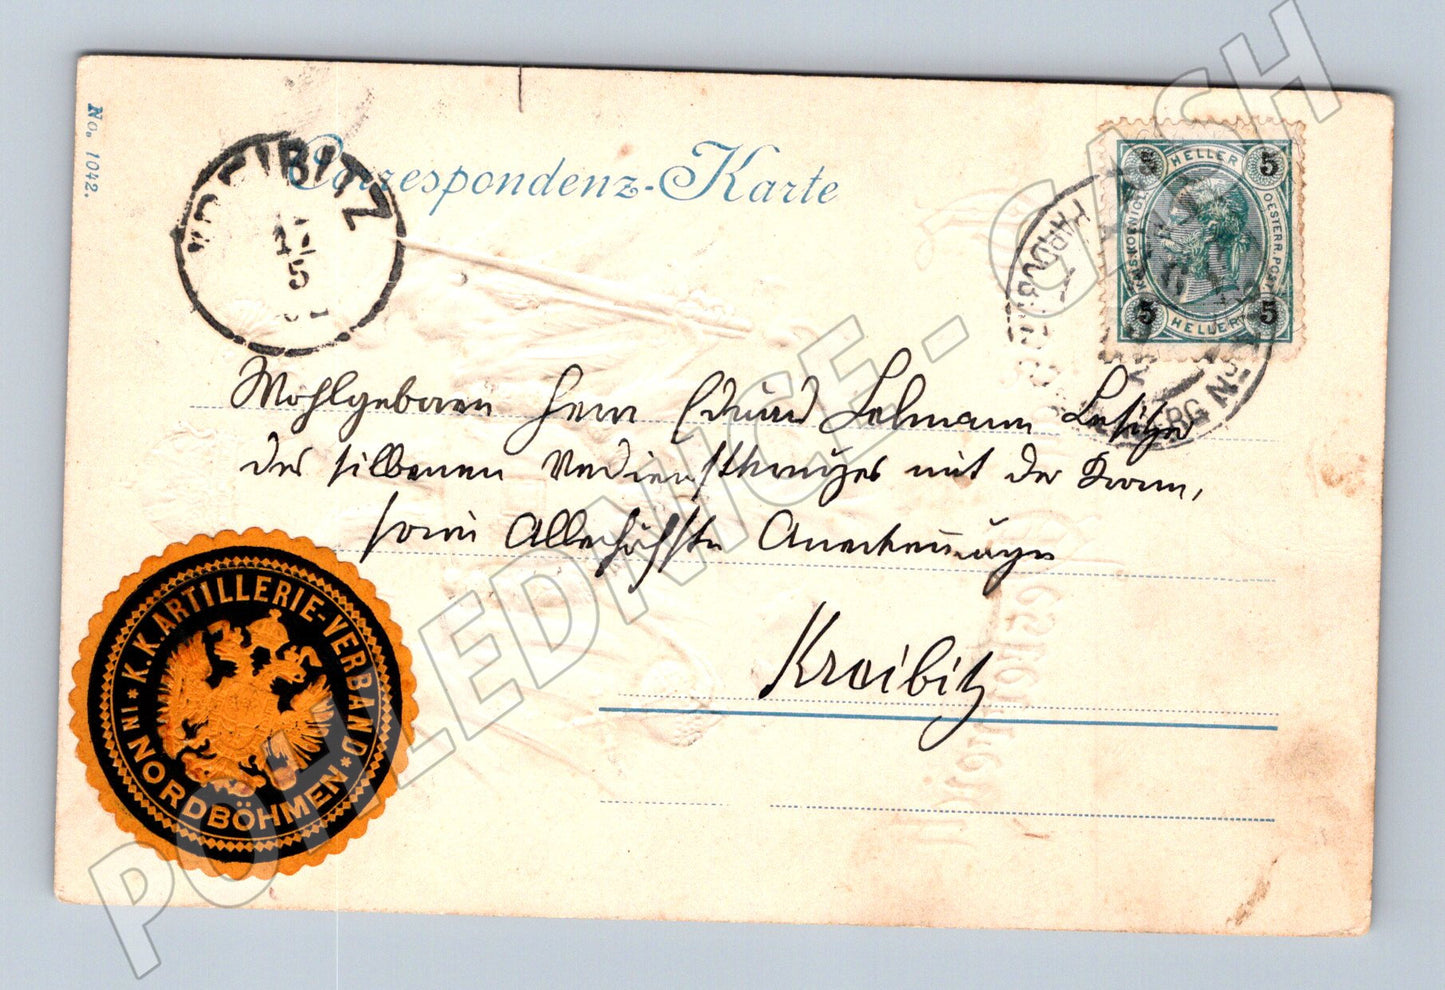 No. 1042.
Correspondenz-Karte
KREIBITZ
17
5
02
5 HELLER 5
KAIS. KOENIGL.
OESTERR. POST
5 HELLER 5
PARDUBITZ
Wohlgeboren Herrn Eduard Lehmann Besitzer
des silbernen Verdienstkreuzes mit der Krone,
sowie Allerhöchste Anerkennungen
Kreibitz
K.K. ARTILLERIE-VERBAND
IN NORDBÖHMEN
POHLEDNICE - CASH